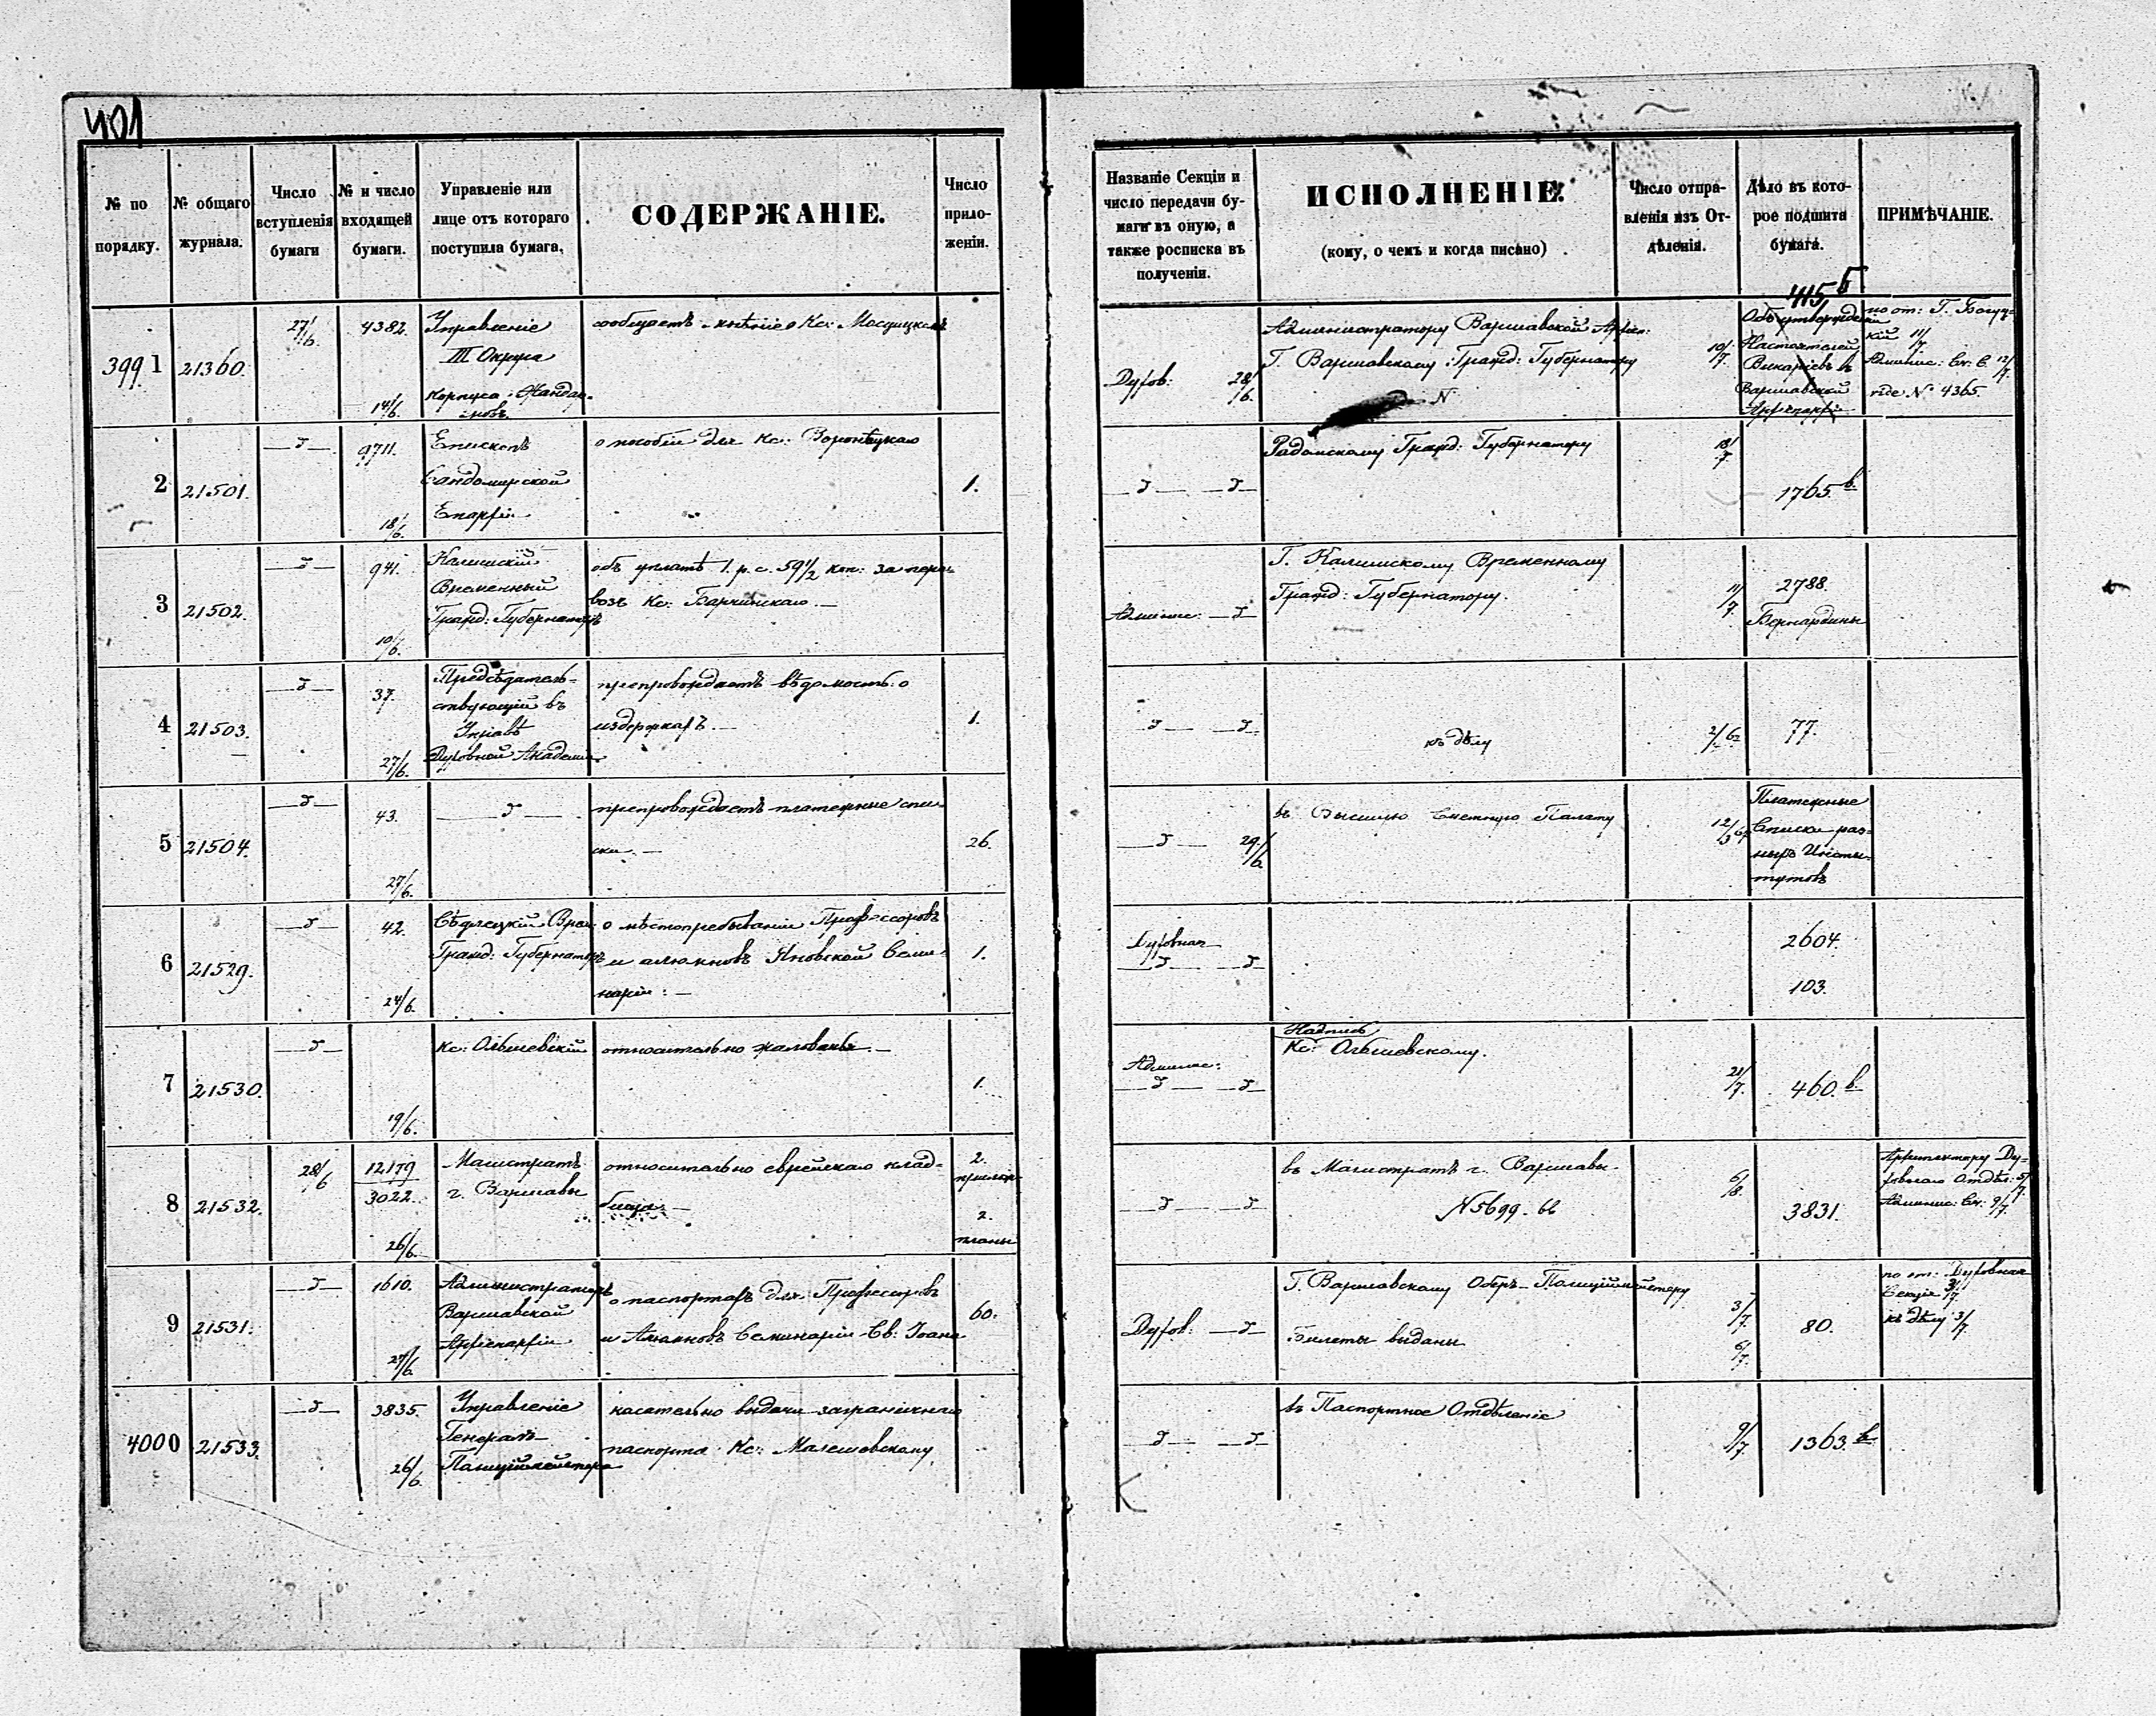 401
№ по порядку.
№ общаго журнала.
Число вступленія бумаги
№ и число входящей бумаги.
Управленіе или лице отъ котораго поступила бумага,
СОДЕРЖАНІЕ.
Число прило-женіи.
Названіе Секціи и число передачи бу-маги въ оную, а также росписка въ полученіи.
ИСПОЛНЕНІЕ.
(кому, о чемъ и когда писано)
Число отпра-вленія изъ От-дѣленія.
Дѣло въ кото-рое подшита бумага.
ПРИМѢЧАНІЕ.
3991
21360.
27/6.
4382.
14/6.
Управленіе
III Округа
Корпуса Жандар-
мовъ.
сообщаетъ мнѣніе о Кс:
Духов: 28/6.
Администратору Варшавской Архіеп:
Г. Варшавскому Гражд: Губернатору
N
10/7.
415 Б
Объ утвержденіи
Настоятелей
Викаріевъ въ
Варшавской
Архіепархіи
по от: Г.
кій 11/7
Админис: Ск: С. 12/7.
N 4365.
2
21501.
9711.
18/6.
Епископъ
Сандомирской
Епархіи
о пособіи для Кс: Воронецкаго
1.
Радомскому Гражд: Губернатору
18/7.
1765 в.
3
21502.
941.
10/6.
Калишскій
Временный
Гражд: Губернаторъ
объ уплатѣ 1. р. с. 59 1/2 коп: за пере-
возъ Кс: Барчинскаго.—
Админис:
Г. Калишскому Временному
Гражд: Губернатору.
11/7.
2788.
Бернардины
4
21503.
37.
27/6.
Предсѣдатель-
ствующій въ
Управѣ
Духовной Академіи
препровождаетъ вѣдомость о
издержкахъ.—
1.
къ дѣлу
77.
5
21504.
43.
27/6.
препровождаетъ платежные спи-
ски.—
26.
29/6.
въ Высшую Счетную Палату
Платежные
Списки раз-
ныхъ Инсти-
тутовъ
6
21529.
42.
24/6.
Сѣдлецкій Врем:
Гражд: Губернаторъ
о мѣстопребываніи Профессоровъ
и алюмновъ Яновской Семи-
наріи:—
1.
Духовная
2604.
103.
7
21530.
19/6.
Кс: Ольшевскій
относительно жалованья.—
1.
Админис:
Надпись
Кс: Ольшевскому.
21/7.
460. в.
8
21532.
28/6
12179
3022.
26/6.
Магистратъ
г. Варшавы
относительно еврейскаго клад-
бища.—
2.
прилож.
2.
планы
въ Магистратъ г. Варшавы.
N 5699.
6/8.
3831.
Архитектору Ду-
ховнаго Отдѣл: 5/7.
Админис: Ск. 9/7.
9
21531.
1610.
27/6.
Администраторъ
Варшавской
Архіепархіи
о паспортахъ для Профессоровъ
и Алюмновъ Семинаріи Св: Іоана
60.
Духов:
Г. Варшавскому Оберъ-Полиціймейстеру
Билеты выданы
3/7.
6/7.
80.
по от: Духовная
Секція 3/7.
къ дѣлу 3/7.
4000
21533.
3835.
26/6.
Управленіе
Генералъ-
Полиціймейстера
касательно выдачи заграничнаго
паспорта Кс: Малешовскому.
въ Паспортное Отдѣленіе
9/7.
1363. в.